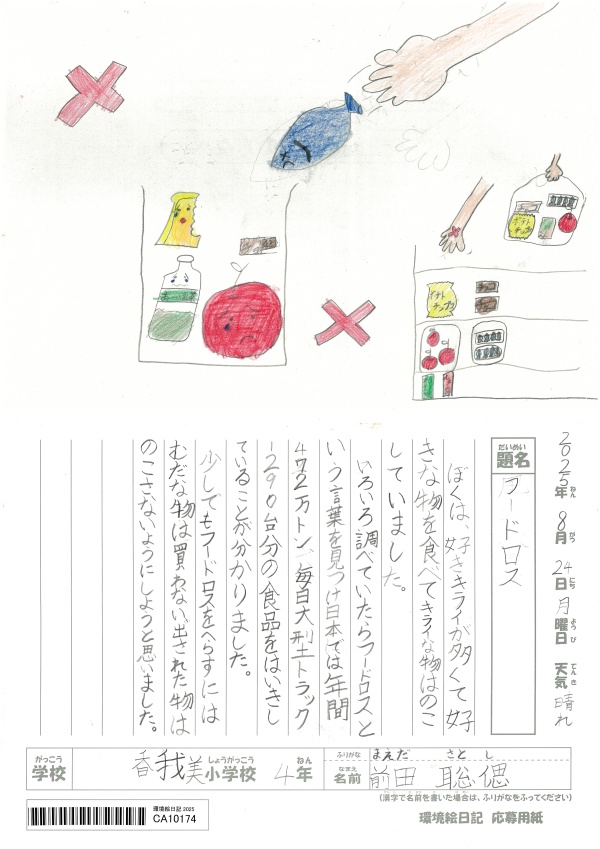 ポテト
チップス
チョコ
ポテト
チップス
お〜い お茶
2025年 8月 24日 月曜日 天気 晴れ
ねん がつ にち ようび てんき
だいめい
題名
フードロス
ぼくは、好ききライが多くて好
きな物を食べてキライな物はのこ
していました。
いろいろ調べていたらフードロスと
いう言葉を見つけ日本では年間
472万トン、毎日大型トラック
1290台分の食品をはいきし
ていることが分かりました。
少しでもフードロスをへらすには
むだな物は買わない出された物は
のこさないようにしようと思いました。
がっこう しょうがっこう ねん ふりがな まえだ さとし
学校 香我美小学校 4年 なまえ 名前 前田 聡偲
(漢字で名前を書いた場合は、ふりがなをふってください)
環境絵日記 2025
CA10174
環境絵日記 応募用紙